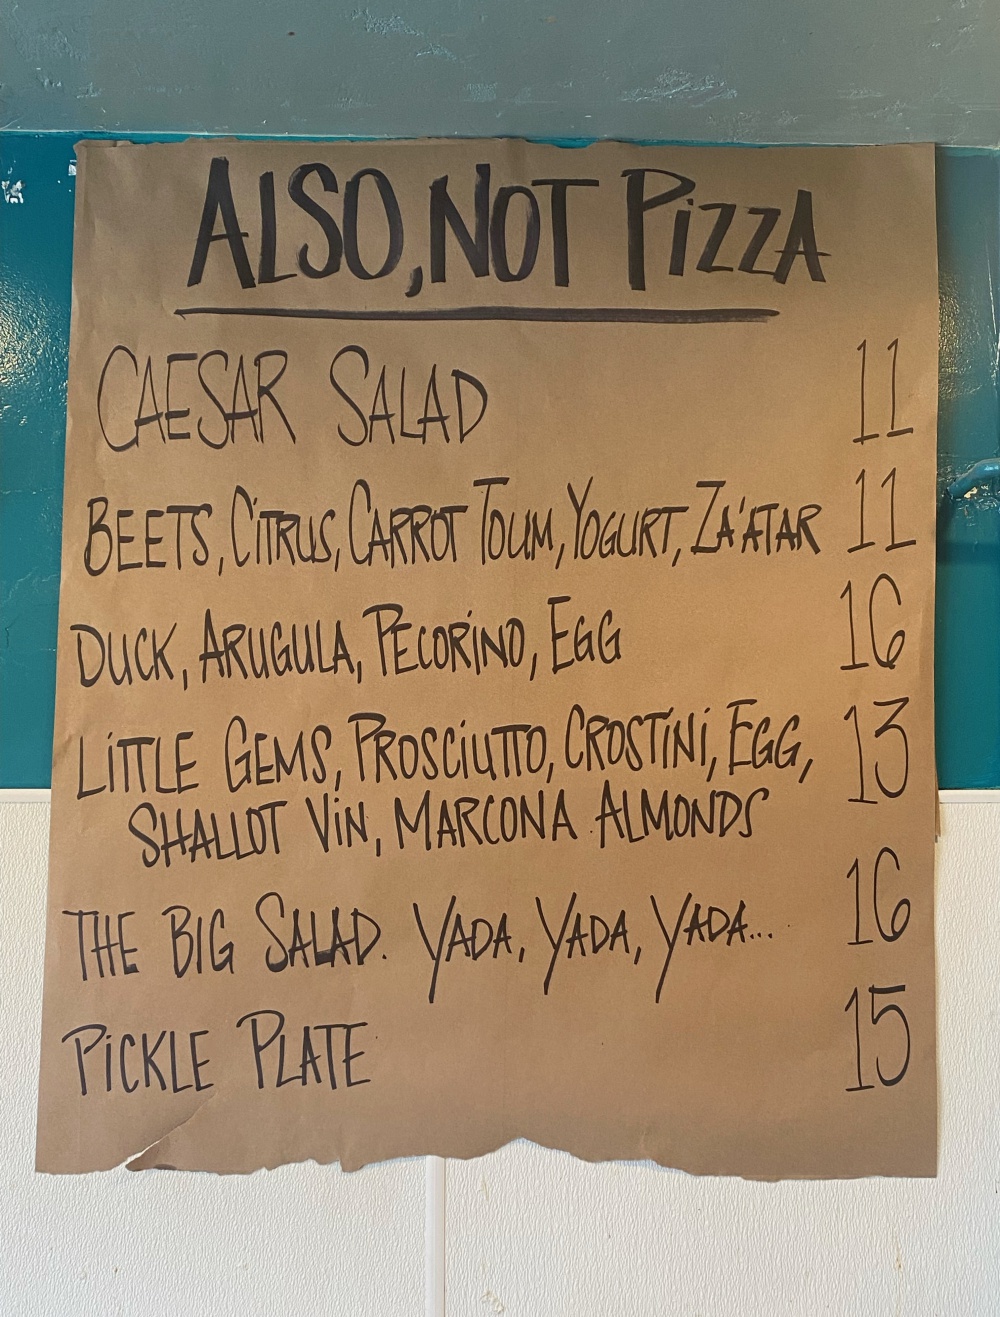 ALSO, NOT PIZZA
CAESAR SALAD 11
BEETS, CITRUS, CARROT TOUM, YOGURT, ZA'ATAR 11
DUCK, ARUGULA, PECORINO, EGG 16
LITTLE GEMS, PROSCIUTTO, CROSTINI, EGG, 13
SHALLOT VIN, MARCONA ALMONDS
THE BIG SALAD. YADA, YADA, YADA... 16
PICKLE PLATE 15